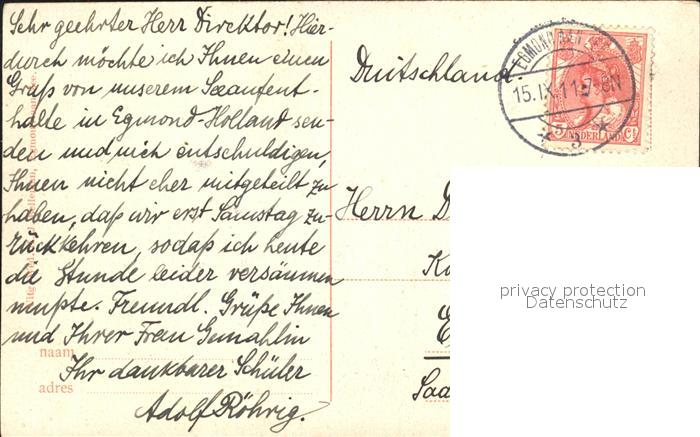 Sehr geehrter Herr Direktor! Hier-
durch möchte ich Ihnen einen
Gruß von unserem Seeaufent-
halte in Egmond-Holland sen-
den und mich entschuldigen,
Ihnen nicht eher mitgeteilt zu
haben, daß wir erst Samstag zu-
rückkehren, sodaß ich heute
die Stunde leider versäumen
mußte. Freundl. Grüße Ihnen
und Ihrer Frau Gemahlin
Ihr dankbarer Schüler
Adolf Röhrig.
naam
adres
Deutschland.
EGMOND
15.IX.11
3
NEDERLAND
5 Ct
Herrn D
Saa
privacy protection
Datenschutz